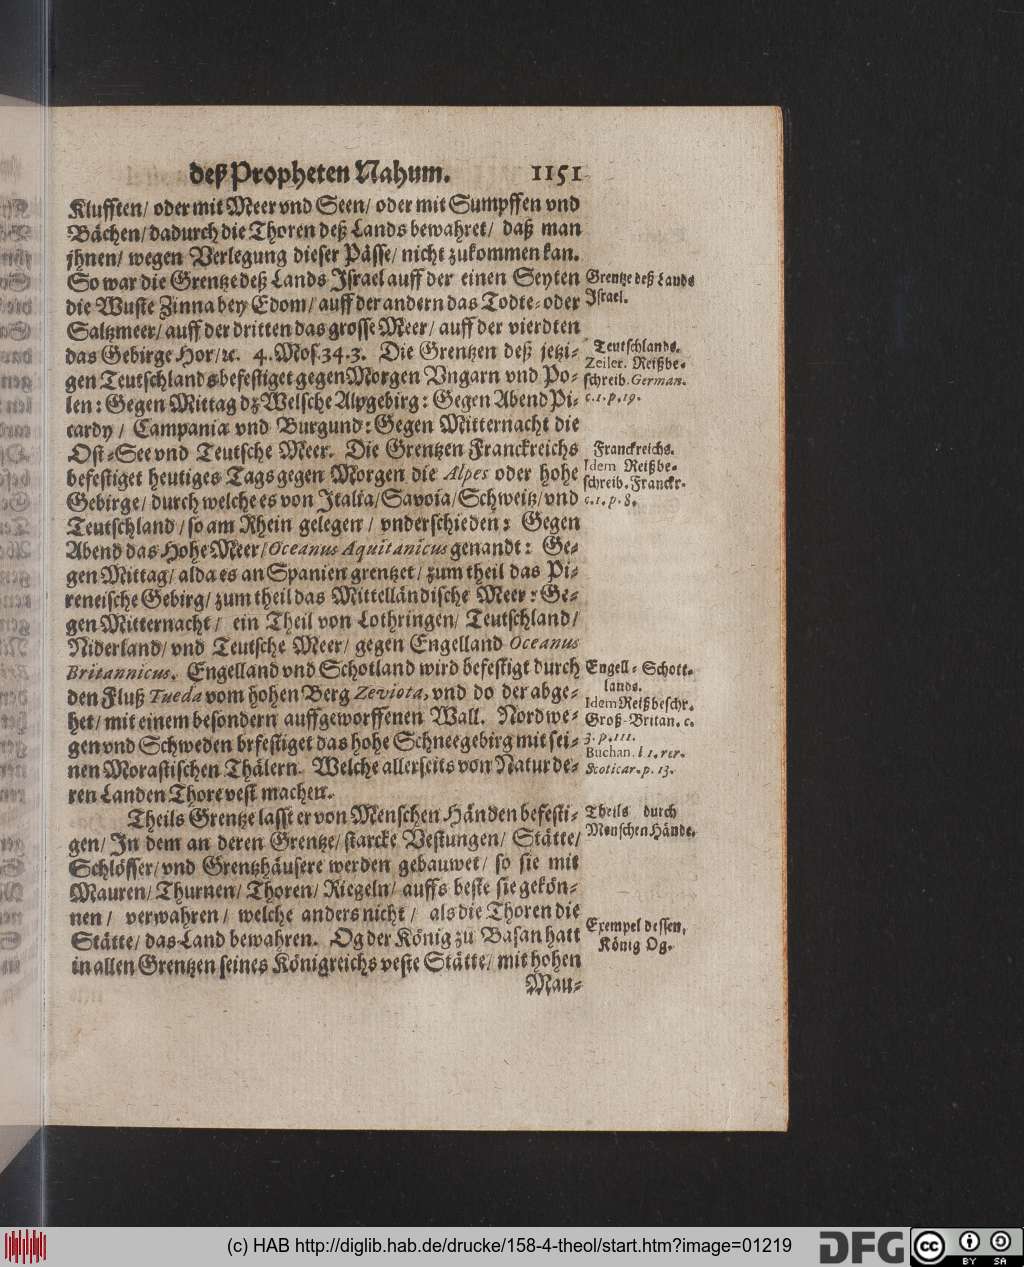 deß Propheten Nahum. 1151
Klufften/ oder mit Meer vnd Seen/ oder mit Sumpffen vnd
Bächen/ dadurch die Thoren deß Lands bewahret/ daß man
jhnen/ wegen Verlegung dieser Pässe/ nicht zukommen kan.
So war die Grentze deß Lands Jsrael auff der einen Seyten
die Wuste Zinna bey Edom/ auff der andern das Todte- oder
Saltzmeer/ auff der dritten das grosse Meer/ auff der vierdten
das Gebirge Hor/ ꝛc. 4. Mos. 34. 3. Die Grentzen deß jetzi-
gen Teutschlands befestiget gegen Morgen Vngarn vnd Po-
len: Gegen Mittag dz Welsche Alpgebirg: Gegen Abend Pi-
cardy/ Campaniæ vnd Burgund: Gegen Mitternacht die
Ost-See vnd Teutsche Meer. Die Grentzen Franckreichs
befestiget heutiges Tags gegen Morgen die Alpes oder hohe
Gebirge/ durch welche es von Jtalia/ Savoia/ Schweitz/ vnd
Teutschland/ so am Rhein gelegen/ vnderschieden: Gegen
Abend das Hohe Meer/ Oceanus Aquitanicus genandt: Ge-
gen Mittag/ alda es an Spanien grentzet/ zum theil das Pi-
reneische Gebirg/ zum theil das Mittelländische Meer: Ge-
gen Mitternacht/ ein Theil von Lothringen/ Teutschland/
Niderland/ vnd Teutsche Meer/ gegen Engelland Oceanus
Britannicus. Engelland vnd Schotland wird befestigt durch
den Fluß Tueda vom hohen Berg Zeviota, vnd do der abge-
het/ mit einem besondern auffgeworffenen Wall. Nordwe-
gen vnd Schweden brfestiget das hohe Schneegebirg mit sei-
nen Morastischen Thälern. Welche allerseits von Natur de-
ren Landen Thore vest machen.
Theils Grentze lasst er von Menschen Händen befesti-
gen/ Jn dem an deren Grentze/ starcke Vestungen/ Stätte/
Schlösser/ vnd Grentzhäusere werden gebauwet/ so sie mit
Mauren/ Thurnen/ Thoren/ Riegeln/ auffs beste sie gekön-
nen/ verwahren/ welche anders nicht/ als die Thoren die
Stätte/ das Land bewahren. Og der König zu Basan hatt
in allen Grentzen seines Königreichs veste Stätte/ mit hohen
Mau-
Grentze deß Lands
Jsrael.
Teutschlands.
Zeiler. Reißbe-
schreib. German.
c. 1. p. 19.
Franckreichs.
Idem Reißbe-
schreib. Franckr.
c. 1. p. 8.
Engell- Schott-
lands.
Idem Reißbeschr.
Groß-Britan. c.
3. p. 111.
Buchan. l 1. rer.
Scoticar. p. 13.
Theils durch
Menschen Hände.
Exempel dessen,
König Og.
(c) HAB http://diglib.hab.de/drucke/158-4-theol/start.htm?image=01219
DFG
cc
BY SA